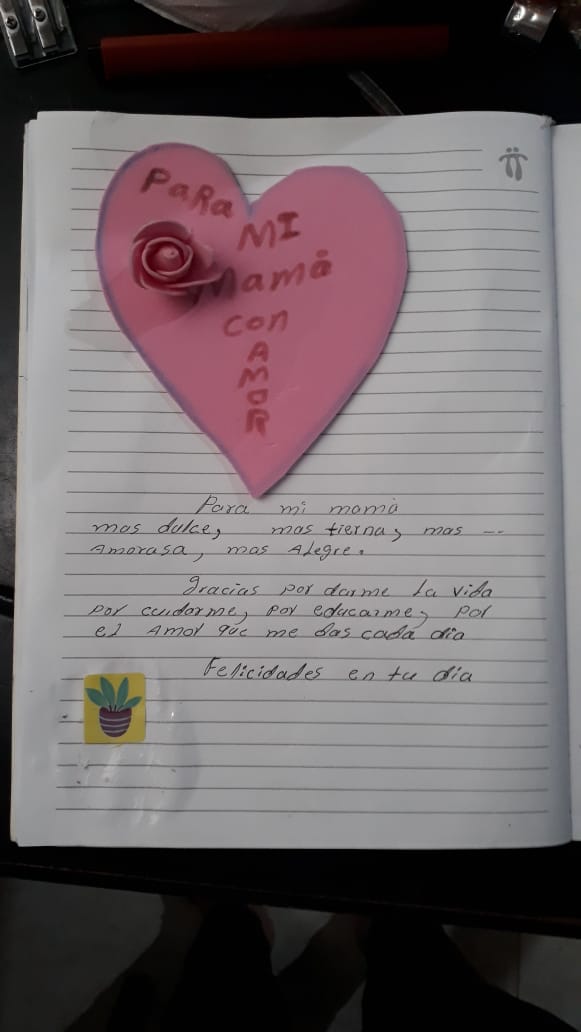 PaRa
MI
Mamá
con
AMOR
Para mi mamá
mas dulce, mas tierna, mas --
Amorasa, mas Alegre.
gracias por darme La vida
por cuidarme, por educarme, por
el Amor que me das cada día
Felicidades en tu día